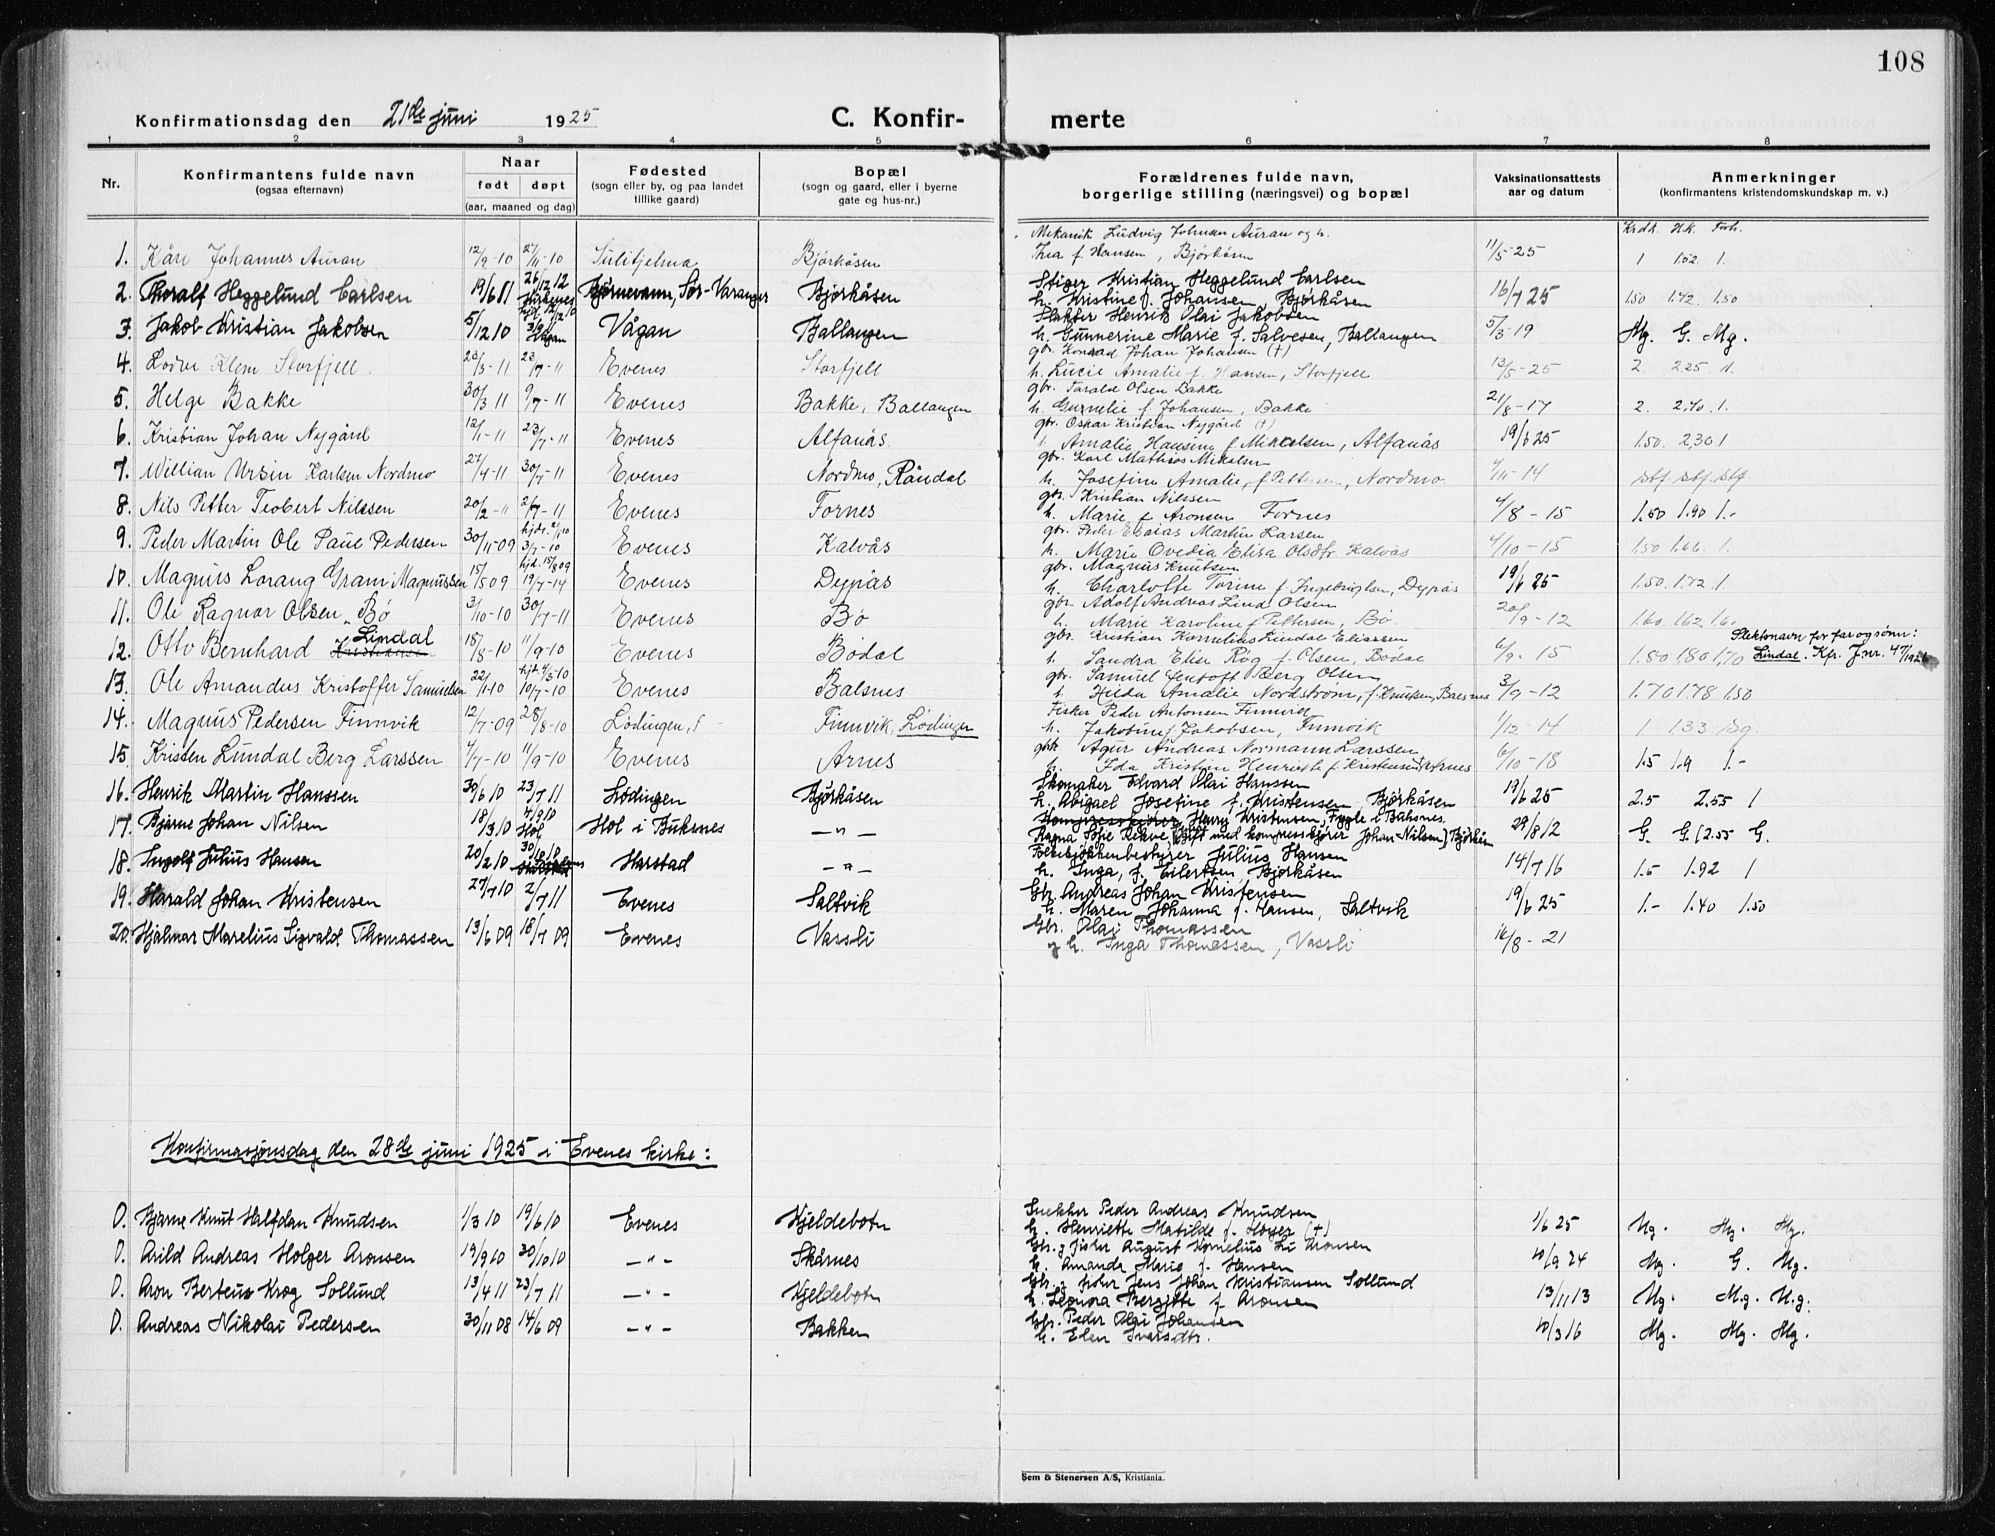 108
Konfirmationsdag den 21de juni 1925 C. Konfirmerte
1 2 3 4 5 6 7 8
Nr. Konfirmantens fulde navn (ogsaa efternavn) Naar født døpt (aar, maaned og dag) Fødested (sogn eller by, og paa landet tillike gaard) Bopæl (sogn og gaard, eller i byerne gate og hus-nr.) Forældrenes fulde navn, borgerlige stilling (næringsvei) og bopæl Vaksinationsattests aar og datum Anmerkninger (konfirmantens kristendomskundskap m. v.)
Krdk. H.k. Forh.
1. Kåre Johannes Auran 12/9-10 27/11-10 Sulitjelma Bjørkåsen Mekanik Ludvig Johnsen Auran og h. Thea f. Hansen, Bjørkåsen 11/5-25 1 1.52 1.
2. Thoralf Heggelund Carlsen 19/6 11 26/12 12 Kirkenes Bjørnevann, Sør-Varanger Bjørkåsen Stiger Kristian Heggelund Carlsen h. Kristine f. Johansen, Bjørkåsen 16/7 25 1.50 1.72 1.50
3. Jakob Kristian Jakobsen 5/12 10 hjd. 12/12 10 3/9 11 Vågan Vågan Ballangen Slakter Henrik Olai Jakobsen h. Gunnerine Marie f. Salvesen, Ballangen 5/3-19 Mg. G. Mg.
4. Lodve Klem Storfjell 23/3-11 23/7-11 Evenes Storfjell gbr. Konrad Johan Johansen (†) h. Lucie Amalie f. Hansen, Storfjell 13/5-25 2. 2.25 1.
5. Helge Bakke 30/3 11 9/7-11 Evenes Bakke, Ballangen gbr. Tarald Olsen Bakke h. Gurnelie f. Johansen, Bakke 21/8-17 2. 2.70 1.
6. Kristian Johan Nygård 12/1-11 23/7-11 Evenes Alfanäs gbr. Oskar Kristian Nygård (†) Amalie Hansine f. Mikkelsen, Alfanäs 19/6 25 1.50. 2,30 1
7. Willian Ursin Karlsen Nordmo 27/4-11 30/7-11 Evenes Nordmo, Råndal gbr. Karl Mathias Mikalsen h. Josefine Amalie, f. Pettersen, Nordmo 4/11-14 Stf. Stf. Stf
8. Nils Petter Teobert Nilssen 20/2-11 2/7-11 Evenes Fornes gbr. Kristian Nilssen h. Marie f. Aronsen Fornes 4/8-15 1.50 1.90 1.-
9. Peder Martin Ole Paul Pedersen 30/11-09 hjdr. 2/1 10 3/7-10 Evenes Kalvås gbr. Peder Esaias Martin Larsen h. Marie Ovedia Elisa Olsdtr. Kalvås 4/10-15 1.50 1.66. 1.
10. Magnus Lorang Gram Magnussen 15/5 09 hjd. 15/8 09 19/7-14 Evenes Dypås gbr. Magnus Knutsen h. Charlotte Torine f. Ingebrigtsen, Dypås 19/6 25 1.50. 1.72 1
11. Ole Ragnar Olsen Bø 3/10-10 30/7-11 Evenes Bø gbr. Adolf Andreas Lind Olsen h. Marie Karoline f. Pettersen, Bø. 20/9-12 1.60. 1.62 1.60
12. Otto Bernhard Lindal 15/8-10 11/9-10 Evenes Bødal gbr. Kristian Kornelius Lindal Eliassen Sandra Elise Røg f. Olsen, Bødal 6/9-15 1.50 1.80 1,70 Slektsnavn for far og sønn: Lindal. Kfr. J.nr. 47/1926
13. Ole Amandus Kristoffer Samuelsen 22/1-10 hjd. 4/3-10 10/7-10 Evenes Balsnes gbr. Samuel Jentoft Berg Olsen Hilda Amalie Nordstrøm, f. Knutsen, Balsnes 3/9-12 1.70 1.78 1.50
14. Magnus Pedersen Finnvik 12/7-09 28/8-10 Lødingen Finnvik, Lødingen Fisker Peder Antonsen Finnvik h. Jakobine f. Jakobsen, Finnvik 1/12-14 1 1.33
15. Kristen Lundal Berg Larssen 4/7-10 11/9-10 Evenes Arnes gbr. Agur Andreas Normann Larssen h. Ida Kristian Henriette f. Kristensen, Arnes 6/10-18 1.5 1.9 1.-
16. Henrik Martin Hanssen 30/6 10 23/7 11 Lødingen Bjørkåsen Skomaker Edvard Olai Hanssen h. Abigael Josefine f. Kristensen, Bjørkåsen 19/6 25 2.5 2.55 1
17. Bjarne Johan Nilsen 18/3 10 4/9 10 Hol Hol i Buksnes —"— Henry Kristensen, Fygle i Buksnes. Ragna Sofie Rekve, (Gift med kompresskjører Johan Nilsen) Bjørkåsen 29/8 12 G. G. (2.55 G.
18. Ingolf Julius Hansen 20/2 10 30/10 10 Harstad —"— Folkekjøkkenbestyrer Julius Hansen h. Inga, f. Eilertsen, Bjørkåsen 14/7 16 1.5 1.92 1
19. Harald Johan Kristensen 27/7 10 2/7 11 Evenes Saltvik Gbr. Andreas Johan Kristensen h. Maren Johanna f. Hansen, Saltvik 19/6 25 1.- 1.40 1.50
20. Hjalmar Marelius Sigvald Thomassen 13/6 09 18/7 09 Evenes Vassli Gbr. Olai Thomassen og h. Inga Thomassen, Vassli 16/8-21
Konfirmasjonsdag den 28de juni 1925 i Evenes kirke:
0. Bjarne Knut Halfdan Knudsen 1/3 10 19/6 10 Evenes Kjeldebotn Snekker Peder Andreas Knudsen h. Henriette Matilde f. Høyer (†) 1/6 25 Mg. Mg. Mg.
0. Arild Andreas Holger Aronsen 19/9 10 30/10 10 —"— Skårnes Gbr. og fisker August Kornelius Li Aronsen h. Amanda Marie f. Hansen 10/9 24 Mg. G. Mg.
0. Aron Berteus Krog Sollund 13/4 11 23/7 11 —"— Kjeldebotn Gbr. og fisker Jens Johan Kristiansen Sollund h. Leonora Bergitte f. Aronsen 13/11 13 Mg. M.g. M.g.
0. Andreas Nikolai Pedersen 30/11 08 14/6 09 —"— Bakken Gbr. Peder Olai Johansen h. Elen Ivarsdtr. 10/3 16 Mg. Mg. Mg.
Sem & Stenersen A/S, Kristiania.